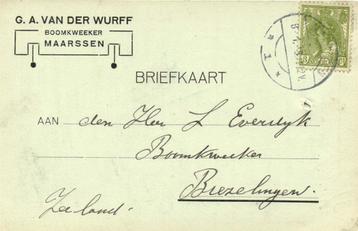 G. A. VAN DER WURFF
BOOMKWEEKER
MAARSSEN
BRIEFKAART
AAN den Heer L Everdijk
Boomkweeker
Biezelingen
Zeeland